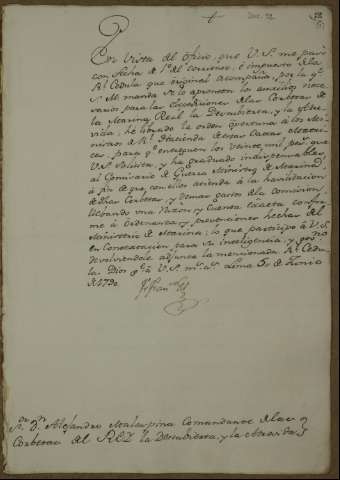 En vista del oficio que V.S. me pasó
con fecha de 1º del corriente, é impuesto de la
Rl. Cedula que original acompaña, por la qe.
S. M. manda se le apronten los auxilios nece
sarios para las expediciones de las Corbetas de
la Marina Real la Descubierta, y la Atre
vida; he librado la orden oportuna á los Mi
nistros de Rl. Hacienda de estas Caxas
para qe. entreguen los veinte mil pes. que
V.S. solicita, y ha graduado indispensables,
al Comisario de Guerra Ministro de Marina,
á fin de que con ellos atienda á la havilitacion
de dhas Corbetas, y demas gastos de la comision,
llevando una Razon y Cuenta exacta confor
me á ordenanza y prevenciones hechas al
Ministerio de Marina; lo que participo á V.S.
en Contextacion para su inteligencia, y
devolviendole adjunta la mencionada Rl. Cedu
la. Dios gue. á V.S. ms. as. Lima 5 de Junio
de 1790.
Sr. Dn. Alejandro Malaspina Comandante de las
Corbetas del REY la Descubierta, y la Atrevida